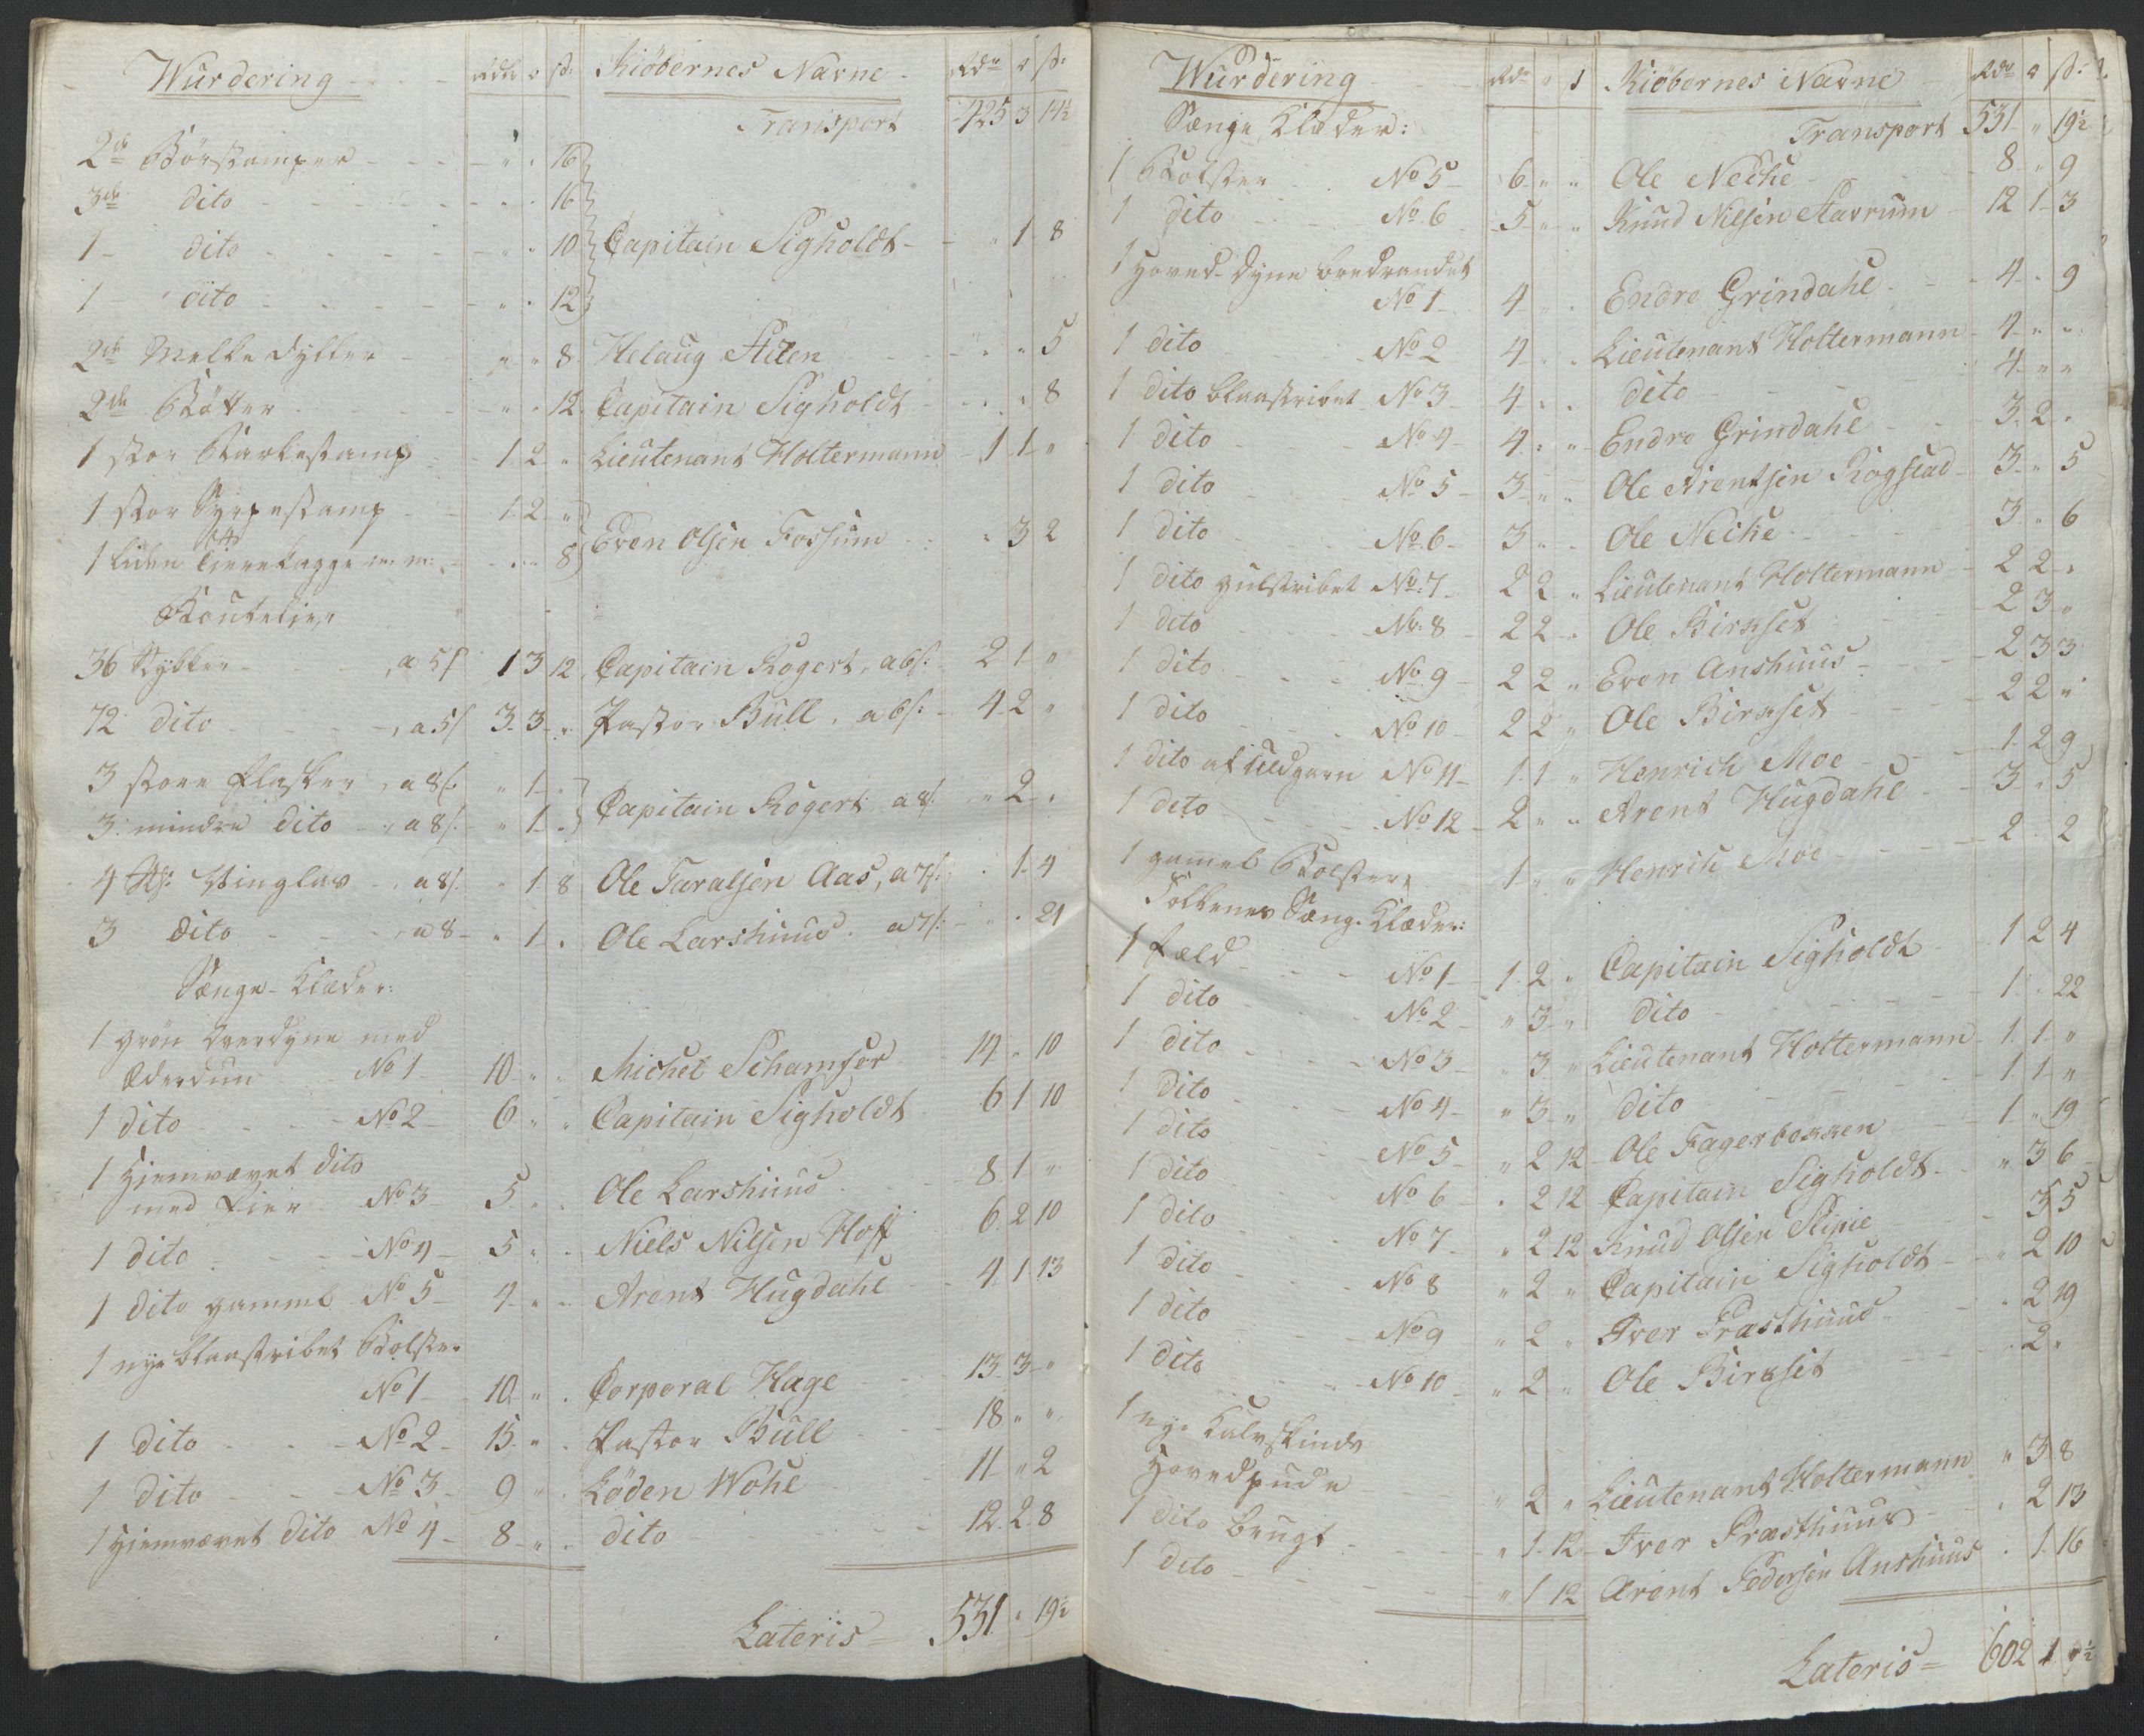 Wurdering Rdr o ß: Kiöbernes Navne Rdr o ß:
Transport 425 3 14½
2de Börstamper " " 16
3de dito " " 16
1 dito " " 10 Capitain Sigholdt " 1 8
1 dito " " 12
2de Melke Bytter " " 8 Helaug Aiten " " 5
2de Bötter " " 12 Capitain Sigholdt " " 8
1 stor Barkestamp 1 2 " Lieutenant Holtermann 1 1 "
1 stor Syrpestamp 1 2 "
1 liden Tierekagge m: m: " " 8 Even Olsen Fossum " 3 2
Boutelier
36 Stykker a 5ß 1 3 12 Capitain Rogert, a 6ß: 2 1 "
72 dito a 5ß 3 3 " Pastor Bull, a 6ß: 4 2 "
3 store Flasker a 8ß " 1 "
3 mindre dito a 8ß " 1 " Capitain Rogert a 8ß " 2 "
4 St: Viinglas a 8ß " 1 8 Ole Taralsen Aas, a 7ß: " 1 4
3 dito a 8 " 1 " Ole Larshuus a 7ß: " " 21
Senge-Klæder:
1 grön Overdyne med
Æderduun No 1 10 " " Michel Schamser 14 " 10
1 dito No 2 6 " " Capitain Sigholdt 6 1 10
1 Hiemvævet dito
med Fier No 3 5 " " Ole Larshuus 8 1 "
1 dito No 4 5 " " Niels Nilsen Hoff 6 2 10
1 dito gammel No 5 4 " " Arent Hugdahl 4 1 13
1 nye blaastribet Bolster
No 1 10 " " Corporal Hage 13 3 "
1 dito No 2 15 " " Pastor Bull 18 " "
1 dito No 3 9 " " Löden Wohl 11 " 2
1 Hiemvævet dito No 4 8 " " dito 12 2 8
Lateris = 531 " 19½
Wurdering Rdr o ß Kiöbernes Navne Rdr o ß:
Senge Klæder:
Transport 531 " 19½
1 Bolster No 5 6 " " Ole Necke 8 " 9
1 dito No 6 5 " " Knud Nilsen Aavrum 12 1 3
1 Hoved-Dyne bredrandet
No 1 4 " " Endre Grindahl 4 " 9
1 dito No 2 4 " " Lieutenant Holtermann 4 " "
1 dito blaastribet No 3 4 " " dito 4 " "
1 dito No 4 4 " " Endre Grindahl 3 2 "
1 dito No 5 3 " " Ole Arentsen Rogstad 3 " 5
1 dito No 6 3 " " Ole Necke 3 " 6
1 dito gulstribet No 7 2 2 " Lieutenant Holtermann 2 2 "
1 dito No 8 2 2 " Ole Birkset 2 3 "
1 dito No 9 2 2 " Even Anshuus 2 3 3
1 dito No 10 2 2 " Ole Birkset 2 2 "
1 dito af Uldgarn No 11 1 1 " Henrich Moe 1 2 9
1 dito No 12 2 " " Arent Hugdahl 3 " 5
1 gamel Bolster 1 " " Henrich Moe 2 " 2
Folkenes Seng-Klæder:
1 Feld No 1 1 2 " Capitain Sigholdt 1 2 4
1 dito No 2 " 3 " dito 1 " 22
1 dito No 3 " 3 " Lieutenant Holtermann 1 1 "
1 dito No 4 " 3 " dito 1 1 "
1 dito No 5 " 2 12 Ole Fagerbakken 1 " 19
1 dito No 6 " 2 12 Capitain Sigholdt " 3 6
1 dito No 7 " 2 12 Knud Olsen 3 5
1 dito No 8 " 2 " Capitain Sigholdt " 2 10
1 dito No 9 " 2 " Iver Præsthuus " 2 19
1 dito No 10 " 2 " Ole Birkset " 2 "
1 nye Kalvskinds
Hovedpude " 2 " Lieutenant Holtermann " 3 8
1 dito brugt " 1 12 Iver Præsthuus " 2 13
1 dito " 1 12 Arent Pedersen Anshuus " 1 16
Lateris = 602 1